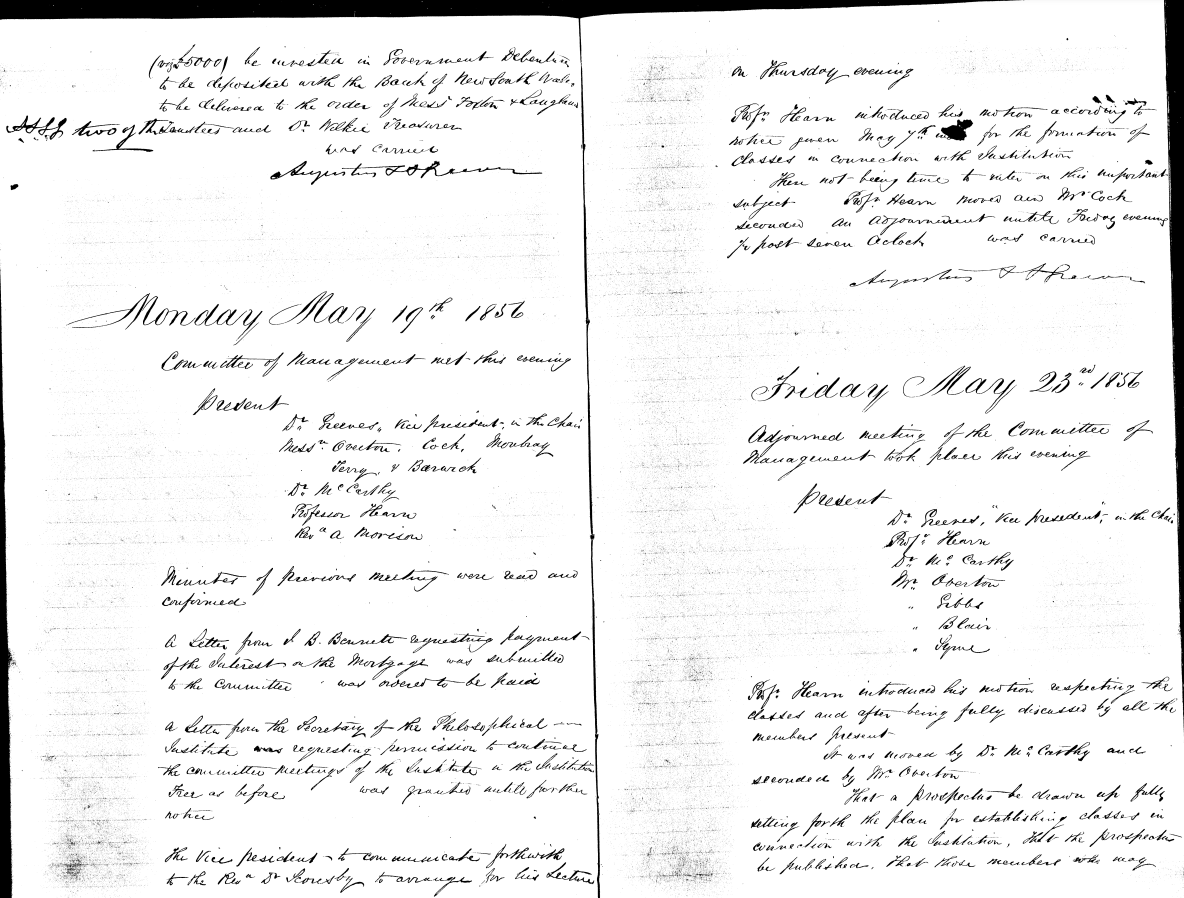 (viz £5000) be invested in Government Debentures
to be deposited with the Bank of New South Wales,
to be delivered to the order of Messrs Foxton & Langhorne
two of the Trustees and Dr. Wilkie Treasurer
was carried
Augustus
Monday May 19th 1856
Committee of Management met this evening
Present
Dr. Greeves, Vice president, in the Chair
Messrs. Overton, Cock, Moubray
Terry, & Barwick
Dr. McCarthy
Professor Hearn
Revd A Morison
Minutes of previous meeting were read and
confirmed
A Letter from J. B. Bennett requesting payment
of the Interest on the Mortgage was submitted
to the Committee was ordered to be paid
A Letter from the Secretary of the Philosophical
Institute was requesting permission to continue
the committee meetings of the Institute in the Institution
Free as before was granted untill further
notice
The Vice president to communicate forthwith
to the Revd Dr Scoresby to arrange for his Lecture
on Thursday evening
Profr. Hearn introduced his motion according to
notice given May 7th for the formation of
classes in connection with Institution
There not being time to enter on this important
subject Profr Hearn moved and Mr Cock
seconded an adjournment untill Friday evening
½ past seven Oclock was carried
Augustus
Friday May 23rd 1856
Adjourned meeting of the Committee of
Management took place this evening
Present
Dr. Greeves, "Vice president", in the Chair
Profr. Hearn
Dr. McCarthy
Mr. Overton
" Gibbs
" Blair
" Syme
Profr. Hearn introduced his motion respecting the
classes and after being fully discussed by all the
members present
It was moved by Dr. McCarthy and
seconded by Mr. Overton
That a prospectus be drawn up fully
setting forth the plan for establishing classes in
connection with the Institution, That the prospectus
be published. That those members who may